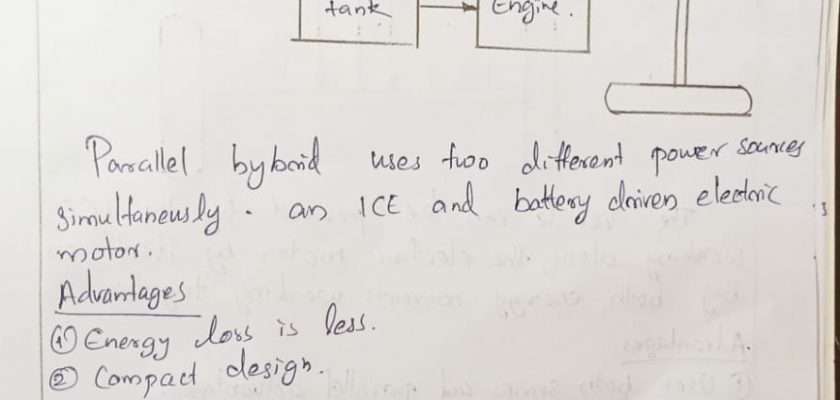 tank
Engine.
Parallel hybrid uses two different power sources
simultaneusly. an ICE and battery driven electric
motor.
Advantages
① Energy loss is less.
② Compact design.